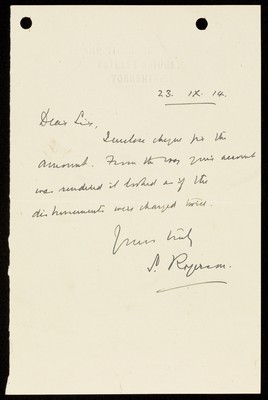 23. IX. 14.
Dear Sir,
I enclose cheque for the
amount. From the way your account
was rendered it looked as if the
disbursements were charged twice.
Yours truly
S. Rogerson.